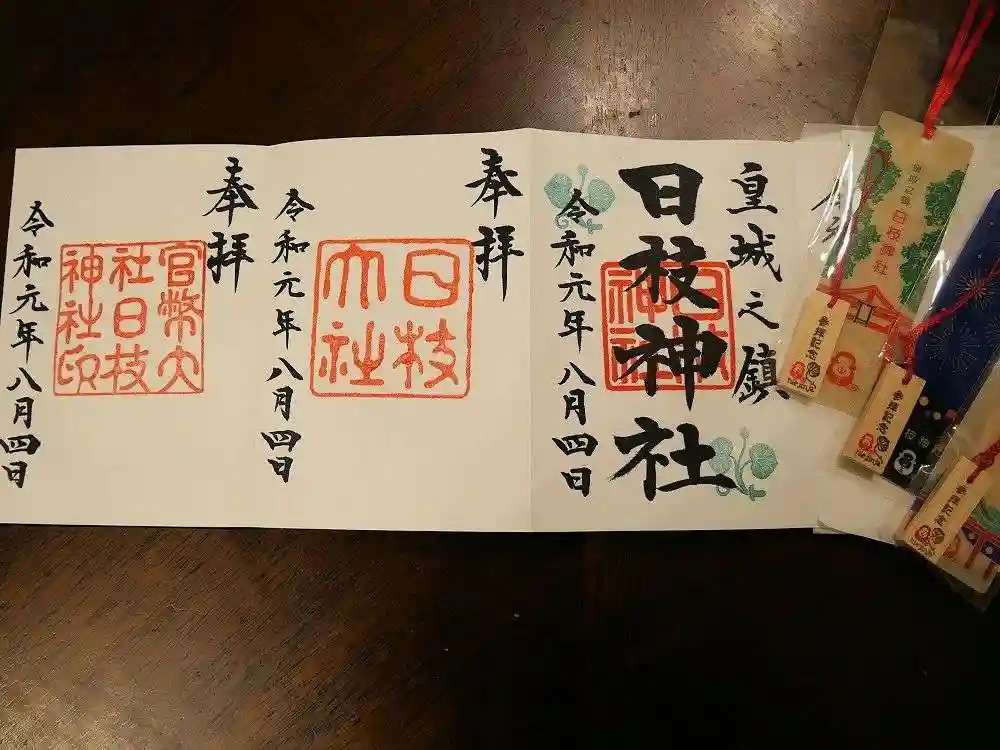 皇城之鎮
日枝神社
日枝神社
令和元年八月四日
奉拝
日枝大社
令和元年八月四日
奉拝
官幣大社日枝神社印
令和元年八月四日
皇城之鎮
日枝神社
参拝記念
参拝記念
参拝記念